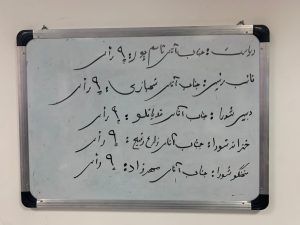 ریاست: جناب آقای قاسم پور: ۹ رأی
نائب رئیس: جناب آقای شهبازی: ۹ رأی
دبیر شورا: جناب آقای: ۹ رأی
خزانه شورا: جناب آقای زارع رفیع: ۹ رأی
سخنگو شورا: جناب آقای سهرزاد: ۹ رأی